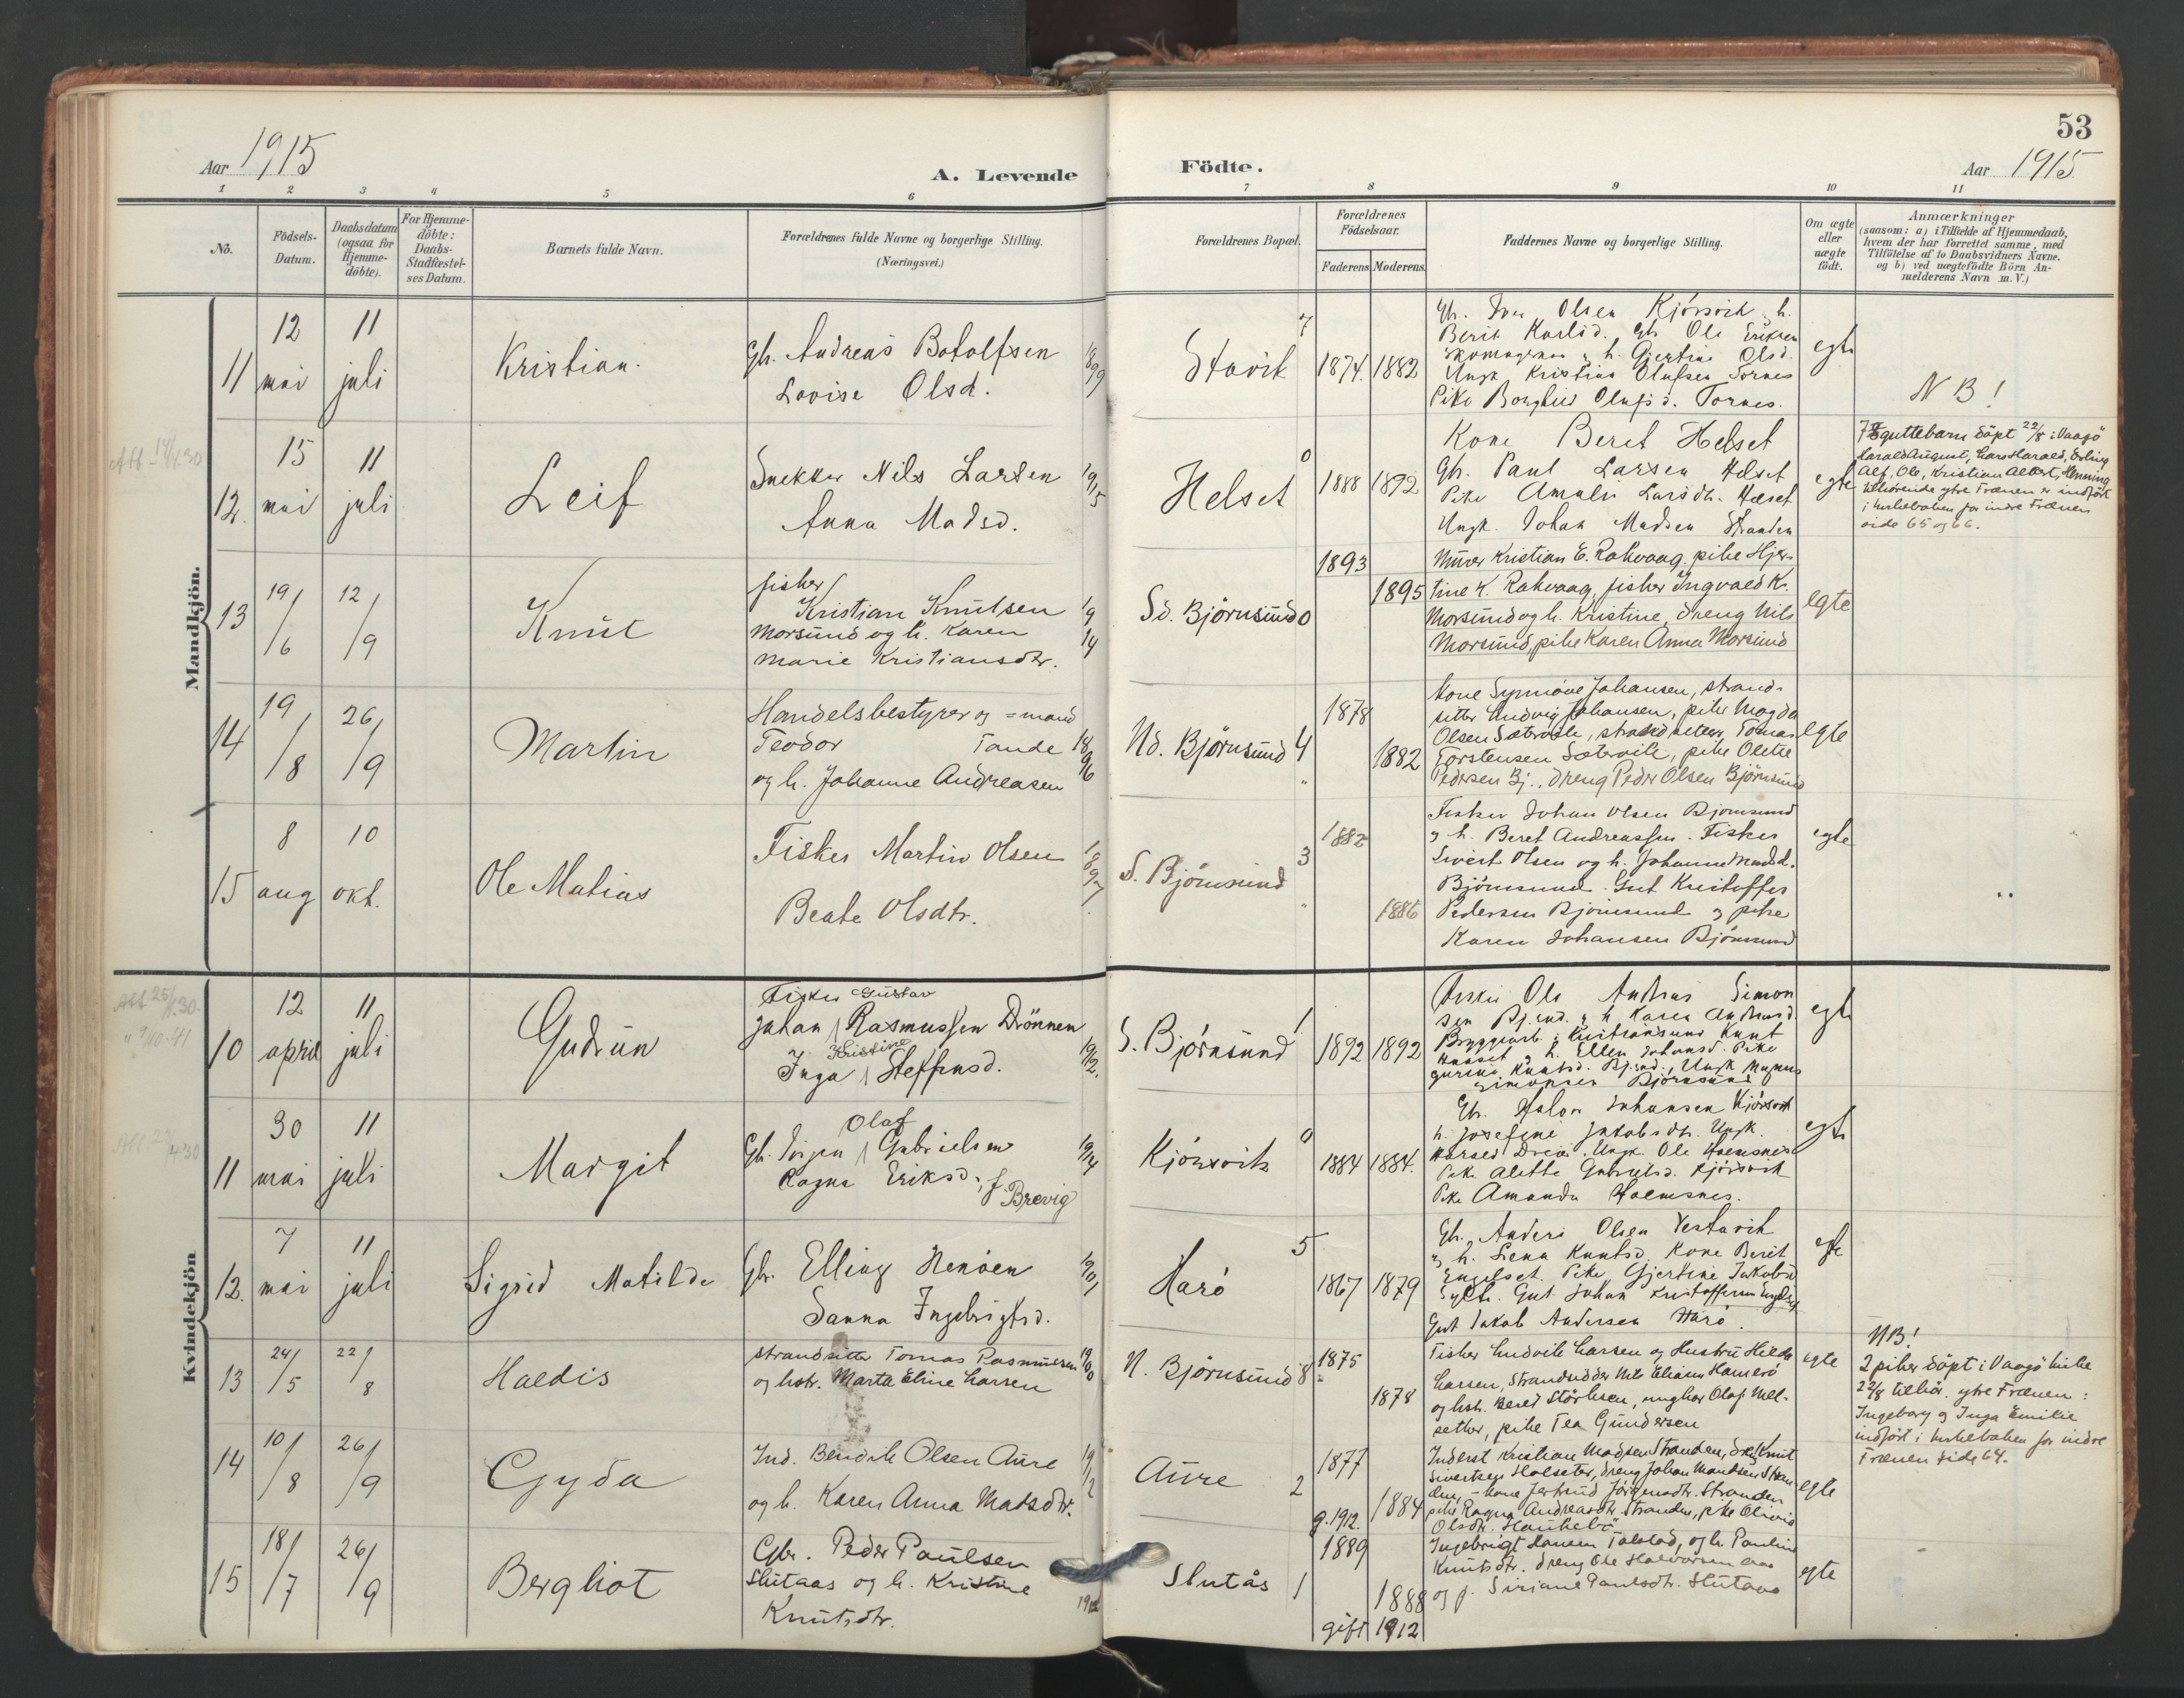 53
Aar 1915
A. Levende
Födte.
Aar 1915
1 2 3 4 5 6 7 8 9 10 11
No.
Födsels-
Datum.
Daabsdatum
(ogsaa for
Hjemme-
döbte).
For Hjemme-
döbte:
Daabs-
Stadfæstel-
ses Datum.
Barnets fulde Navn.
Forældrenes fulde Navne og borgerlige Stilling.
(Næringsvei.)
Forældrenes Bopæl.
Forældrenes
Födselsaar.
Faderens Moderens
Faddernes Navne og borgerlige Stilling.
Om ægte
eller
uægte
födt.
Anmærkninger
(saasom: a) i Tilfælde af Hjemmedaab,
hvem der har forrettet samme, med
Tilföielse af to Daabsvidners Navne,
og b) ved uægtefödte Börn An-
melderens Navn m. V.)
Mandkjön.
11
12 mai
11 juli
Kristian.
Gb. Andreas Botolfsen
Lovise Olsd.
1899
Stavik
7
1874. 1882
Gb. Iver Olsen Kjörsvik, h.
Berit Karlsd. Gb. Ole Eriksen
h. Gjertine Olsd.
Ungk. Kristian Olufsen Tornes
Pike Borghild Olufsd. Tornes.
egte
NB!
Att 14/4.30
12.
15 mai
11 juli
Leif
Snekker Nils Larsen
Anna Madsd.
1915
Helset
0
1888 1892
Kone Beret Helset
Gb. Paul Larsen Helset
Pike Amalie Larsdtr. Helset
Ungk. Johan Madsen Stranden
egte
7 guttebarn döpt 22/8 i Vaagö
Harald August, Lars Harald, Erling
Alf, Ole, Kristian Albert, Henning
tilhörende ytre Frænen er indfört
i kirkeboken for indre Frænen
side 65 og 66.
13
19/6
12/9
Knut
fisker
Kristian Knutsen
Morsund og h. Karen
Marie Kristiansdtr.
1914
Sd. Björnsund 0
1893
1895
Murer Kristian E. Rakvaag, pike Hjer-
tine K. Rakvaag, fisker Ingvald K.
Morsund og h. Kristine, dreng Nils
Morsund, pike Karen Anna Morsund
egte
14
19/8
26/9
Martin
Handelsbestyrer og =mand
Teodor Tande
og h. Johanne Andreasen
1896
Nd. Björnsund 4
1878
1882
Kone Synnöve Johansen, strand-
sitter Ludvig Johansen, pike Magda
Olsen Sætervik, strandsitter Tomas
Torstensen Sætervik, pike Olette
Pedersen Bj., dreng Peder Olsen Björnsund
egte
15
8 aug
10 okt.
Ole Matias
Fisker Martin Olsen
Beate Olsdtr.
1897.
S. Björnsund
3
1882
1886
Fisker Johan Olsen Bjornsund
og h. Beret Andreassen. Fisker
Sivert Olsen og h. Johanne Madsd.
Björnsund. Gut Kristoffer
Pedersen Björnsund og pike
Karen Johansen Björnsund
egte
Kvindekjön
Att 25/1.30.
" 9/10-41
10
12 april
11 juli
Gudrun
Fisker Gustav
Johan Rasmussen Drönnen
Kristine
Inga Steffensd.
1912.
S. Björnsund
1
1892 1892
Fisker Ole Andreas Simon
sen Bj.snd. og h. Karen Andreasd.
Bryggearb. i Kristiansund Knut
h. Ellen Johansd. Pike
Knutsd. Bj.snd., Ungk Magnus
Simonsen Björnsund
egte
11
30 mai
11 juli
Margit
Olaf
Gb. Jörgen Gabrielsen
Ragna Eriksd., f. Brevig
1914
Kjörsvik
0
1884 1884.
Gb. Johansen Kjörsvik
h. Josefine Jakobsdtr. Ungk.
Ungk Ole Holmsnes
Pike Alette Gabrielsd. Kjörsvik
Pike Amanda Holmsnes.
egte
12.
7 mai
11 juli
Sigrid Matilde
Gbr. Elling Henöen
Sanna Ingebrigtsd.
1901
Harö
5
1867 1879
Gb. Anders Olsen Vestavik
og h. Lena Knutsd. Kone Berit
Engelset. Pike Gjertine Jakobsd.
Gut Johan Kristoffersen
Gut Jakob Andersen Harö.
egte
13
24/5
22/8
Haldis
strandsitter Tomas Rasmussen
og hstr. Marta Eline Larsen
1900
N. Björnsund 8
1875
1878
Fisker Ludvik Larsen og Hustru Hilda
Larsen, Strandsidder Nils Eliasen Hamerö
og hstr. Beret Störksen, ungkar Olaf Mel-
sether, pike Tea Gundersen
egte
NB!
2 piker döpt i Vaagö kirke
22/8 tilhör. ytre Frænen:
Ingeborg og Inga Emilie
indfört i kirkeboken for indre
Frænen side 64.
14
10/8
26/9
Gyda
Ind. Bendik Olsen Aure
og h. Karen Anna Matsdtr.
1912
Aure
2
1877
1884
g. 1912.
Inderst Kristian Madsen Stranden, dreng Knut
Sivertsen Holseter, dreng Johan Madsen Stran
den, kone Jertrud Jörgensdtr. Stranden
pike Ragna Andreasdtr. Stranden, pike Olivia
Olsdtr. Haukebö
egte
15
18/7
26/9
Bergliot
Gbr. Peder Paulsen
Slutaas og h. Kristine
Knutsdtr.
1912
Slutås 1
1889
1888
gift 1912
Ingebrigt Hansen Talstad, og h. Pauline
Knutsdtr. dreng Ole Halvorsen
og p. Sirianne Paulsdtr. Slutaas
egte